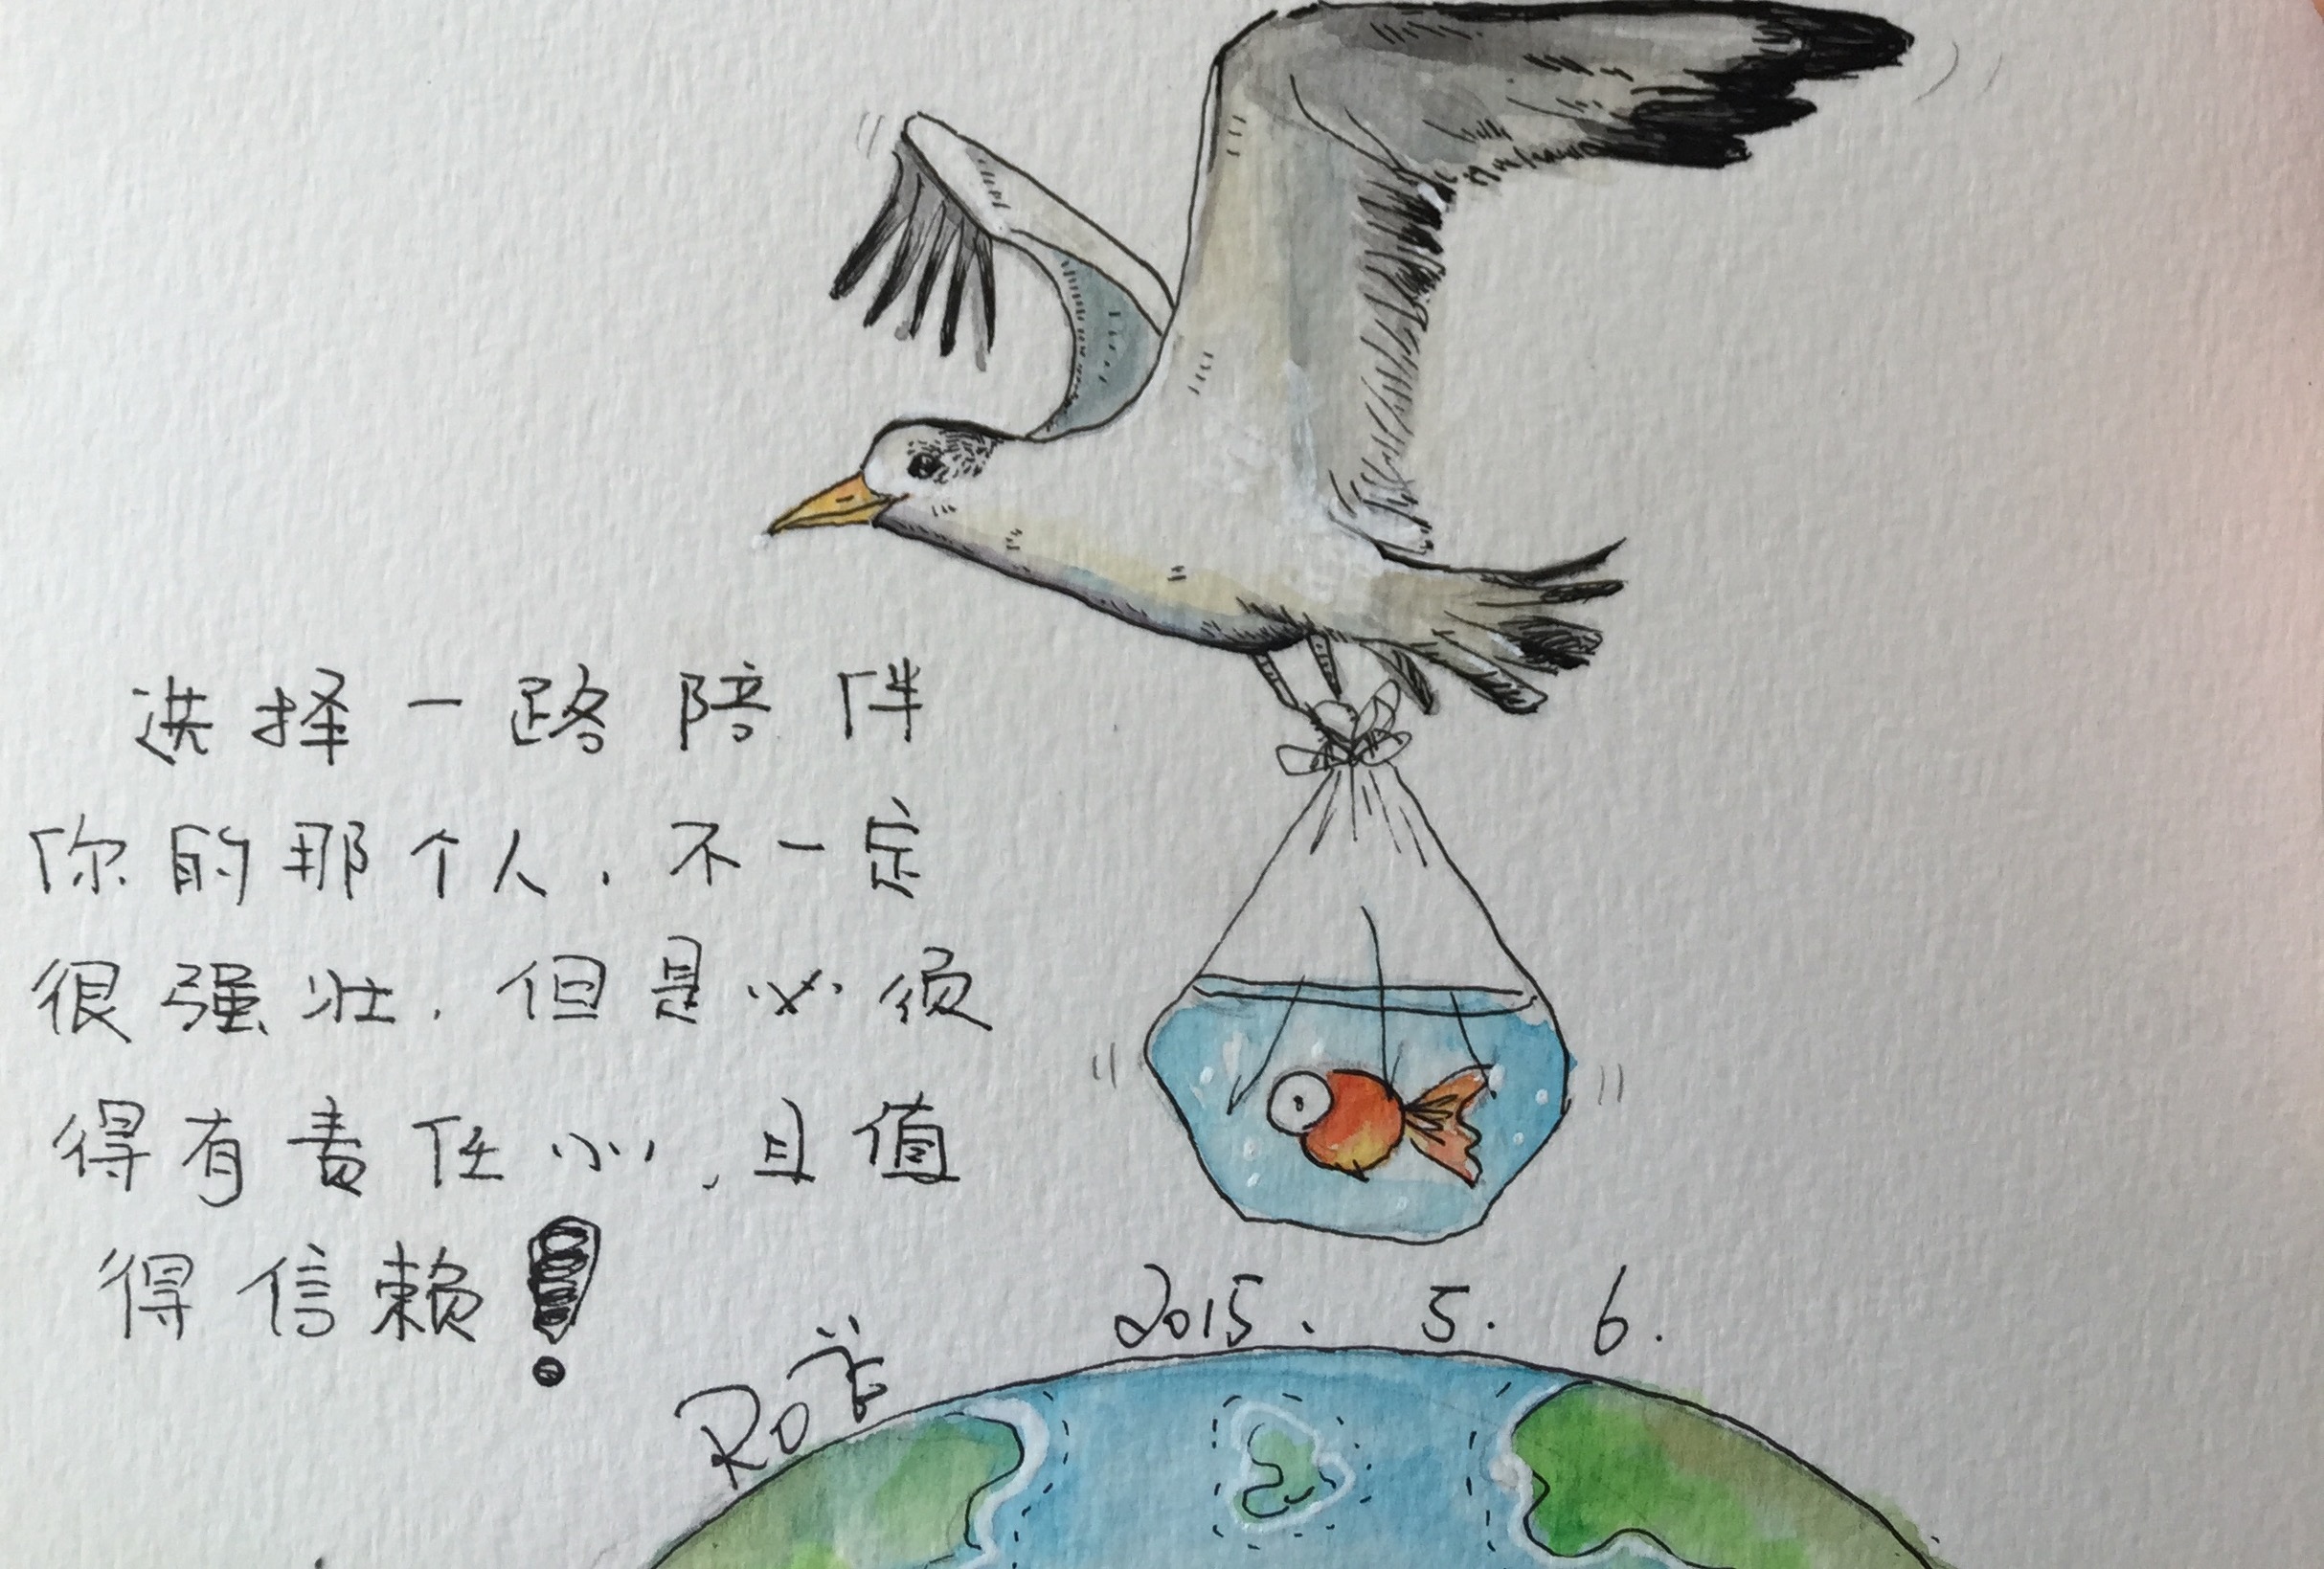 选择一路陪伴
你的那个人,不一定
很强壮,但是必须
得有责任心,且值
得信赖!
2015. 5. 6.
Ro